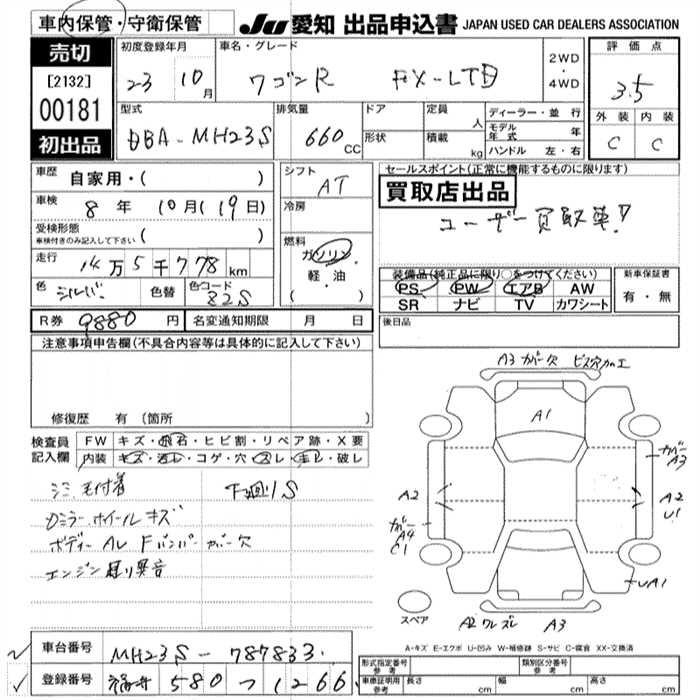 車内保管・守衛保管
JU 愛知 出品申込書 JAPAN USED CAR DEALERS ASSOCIATION
売切
[2132]
00181
初出品
初度登録年月
23 10月
車名・グレード
ワゴンR FX-LTD
2WD・4WD
評価点
3.5
外装 内装
C C
型式
DBA-MH23S
排気量
660CC
ドア
形状
定員 人
積載 kg
ディーラー・並行
モデル年式 年
ハンドル 左・右
車歴
自家用・( )
車検
8年 10月(19日)
受検形態
車検付きのみ記入して下さい ( )
走行
14万5千778km
色 シルバー 色替 色コード Z2S
シフト
AT
冷房
燃料
ガソリン
軽・油
( )
セールスポイント(正常に機能するものに限ります)
買取店出品
ユーザー買取車!
装備品(純正品に限り○をつけてください)
PS PW エアB AW
SR ナビ TV カワシート
新車保証書
有・無
R券 9880円 名変通知期限 月 日
後日品
注意事項申告欄(不具合内容等は具体的に記入して下さい)
修復歴 有(箇所 )
検査員記入欄
FW キズ・飛石・ヒビ割・リペア跡・X要
内装 キズ・汚レ・コゲ・穴・スレ・キレ・破レ
シミ、毛付着 下廻りS
Dミラー ホイールキズ
ボディーAL Fバンパーカバー欠
エンジン廻り異音
A3 カバー欠 ビス穴加工
A1
カバー
A3
A2
A2
U1
カバー
A4
C1
UA1
スペア
A2 ワレ スレ A3
A-キズ E-エクボ U-凹み W-補修跡 S-サビ C-腐食 XX-交換済
車台番号 MH23S-787833
登録番号 福井 580 つ 1266
形式指定番号 参考
類別区分番号 参考
車庫証明用 参考 長さ cm 幅 cm 高さ cm